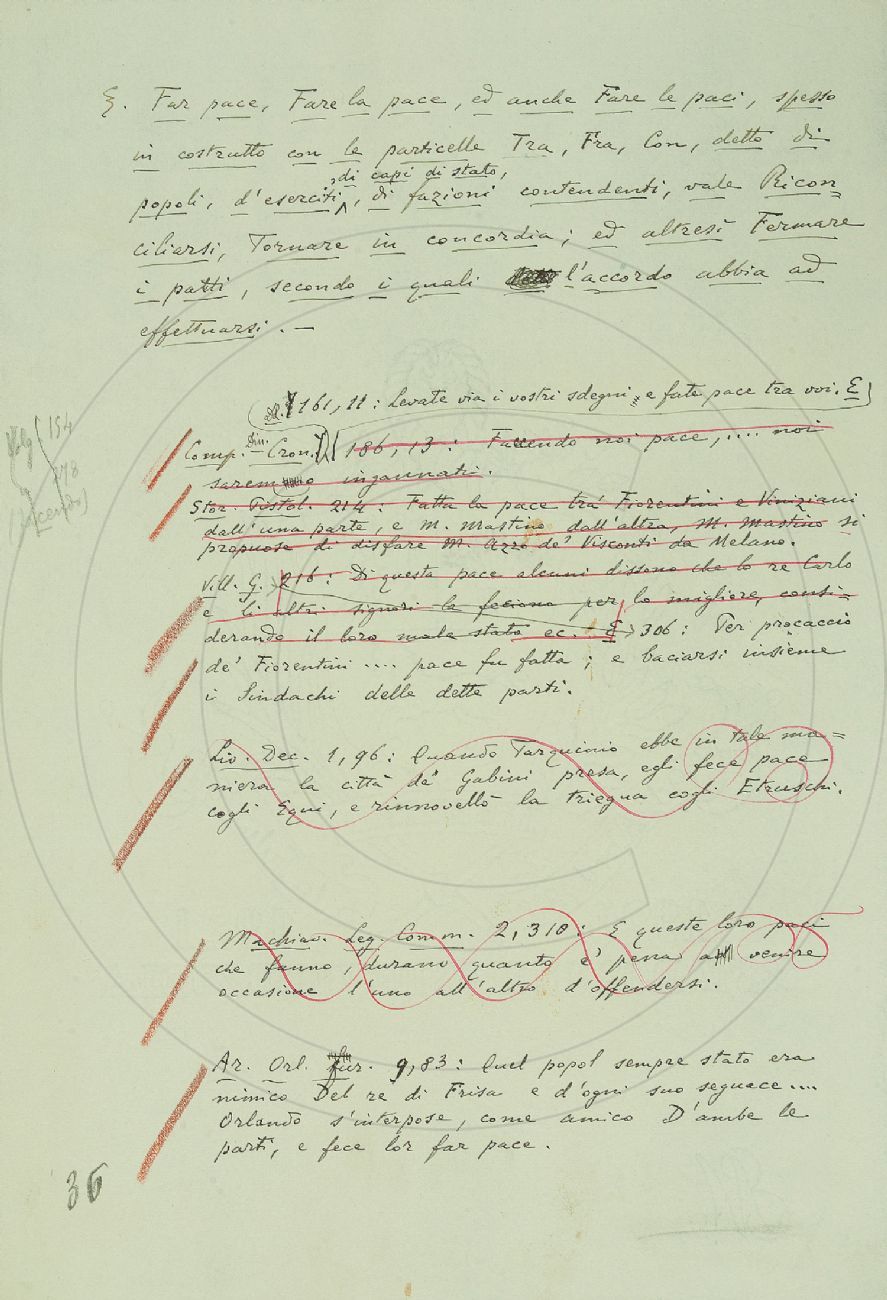 §. Far pace, Fare la pace, ed anche Fare le paci, spesso
in costrutto con le particelle Tra, Fra, Con, detto di
, di capi di stato,
popoli, d'eserciti, di fazioni contendenti, vale Ricon=
ciliarsi, Tornare in concordia; ed altresì Fermare
i patti, secondo i quali l'accordo abbia ad
effettuarsi. —
161, 11: Levate via i vostri sdegni, e fate pace tra voi. E
Comp. Din. Cron. 186, 13: Facendo noi pace, .... noi
saremmo ingannati.
Stor. Pistol. 214: Fatta la pace tra' Fiorentini e Viniziani
dall'una parte, e M. Mastino dall'altra, M. Mastino si
propuose di disfare M. Azzo de' Visconti da Melano.
Vill. G. 216: Di questa pace alcuni dissono che lo re Carlo
e li altri signori la feciono per lo migliore, consi=
derando il loro male stato ec. E 306: Per procaccio
de' Fiorentini .... pace fu fatta; e baciarsi insieme
i Sindachi delle dette parti.
Liv. Dec. 1, 96: Quando Tarquinio ebbe in tale ma=
niera la città da' Gabini presa, egli fece pace
cogli Equi, e rinnovellò la triegua cogli Etruschi.
Machiav. Leg. Comm. 2, 310: E queste loro paci
che fanno, durano quanto e' pena a venire
occasione l'uno all'altro d'offendersi.
Ar. Orl. fur. 9, 83: Quel popol sempre stato era
nimico Del re di Frisa e d'ogni suo seguace ....
Orlando s'interpose, come amico D'ambe le
parti, e fece lor far pace.
36